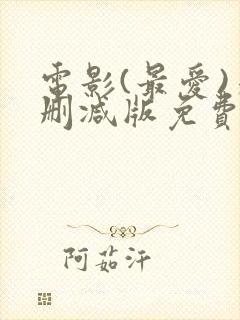 電影(最愛)
刪減版免費
阿茹汗